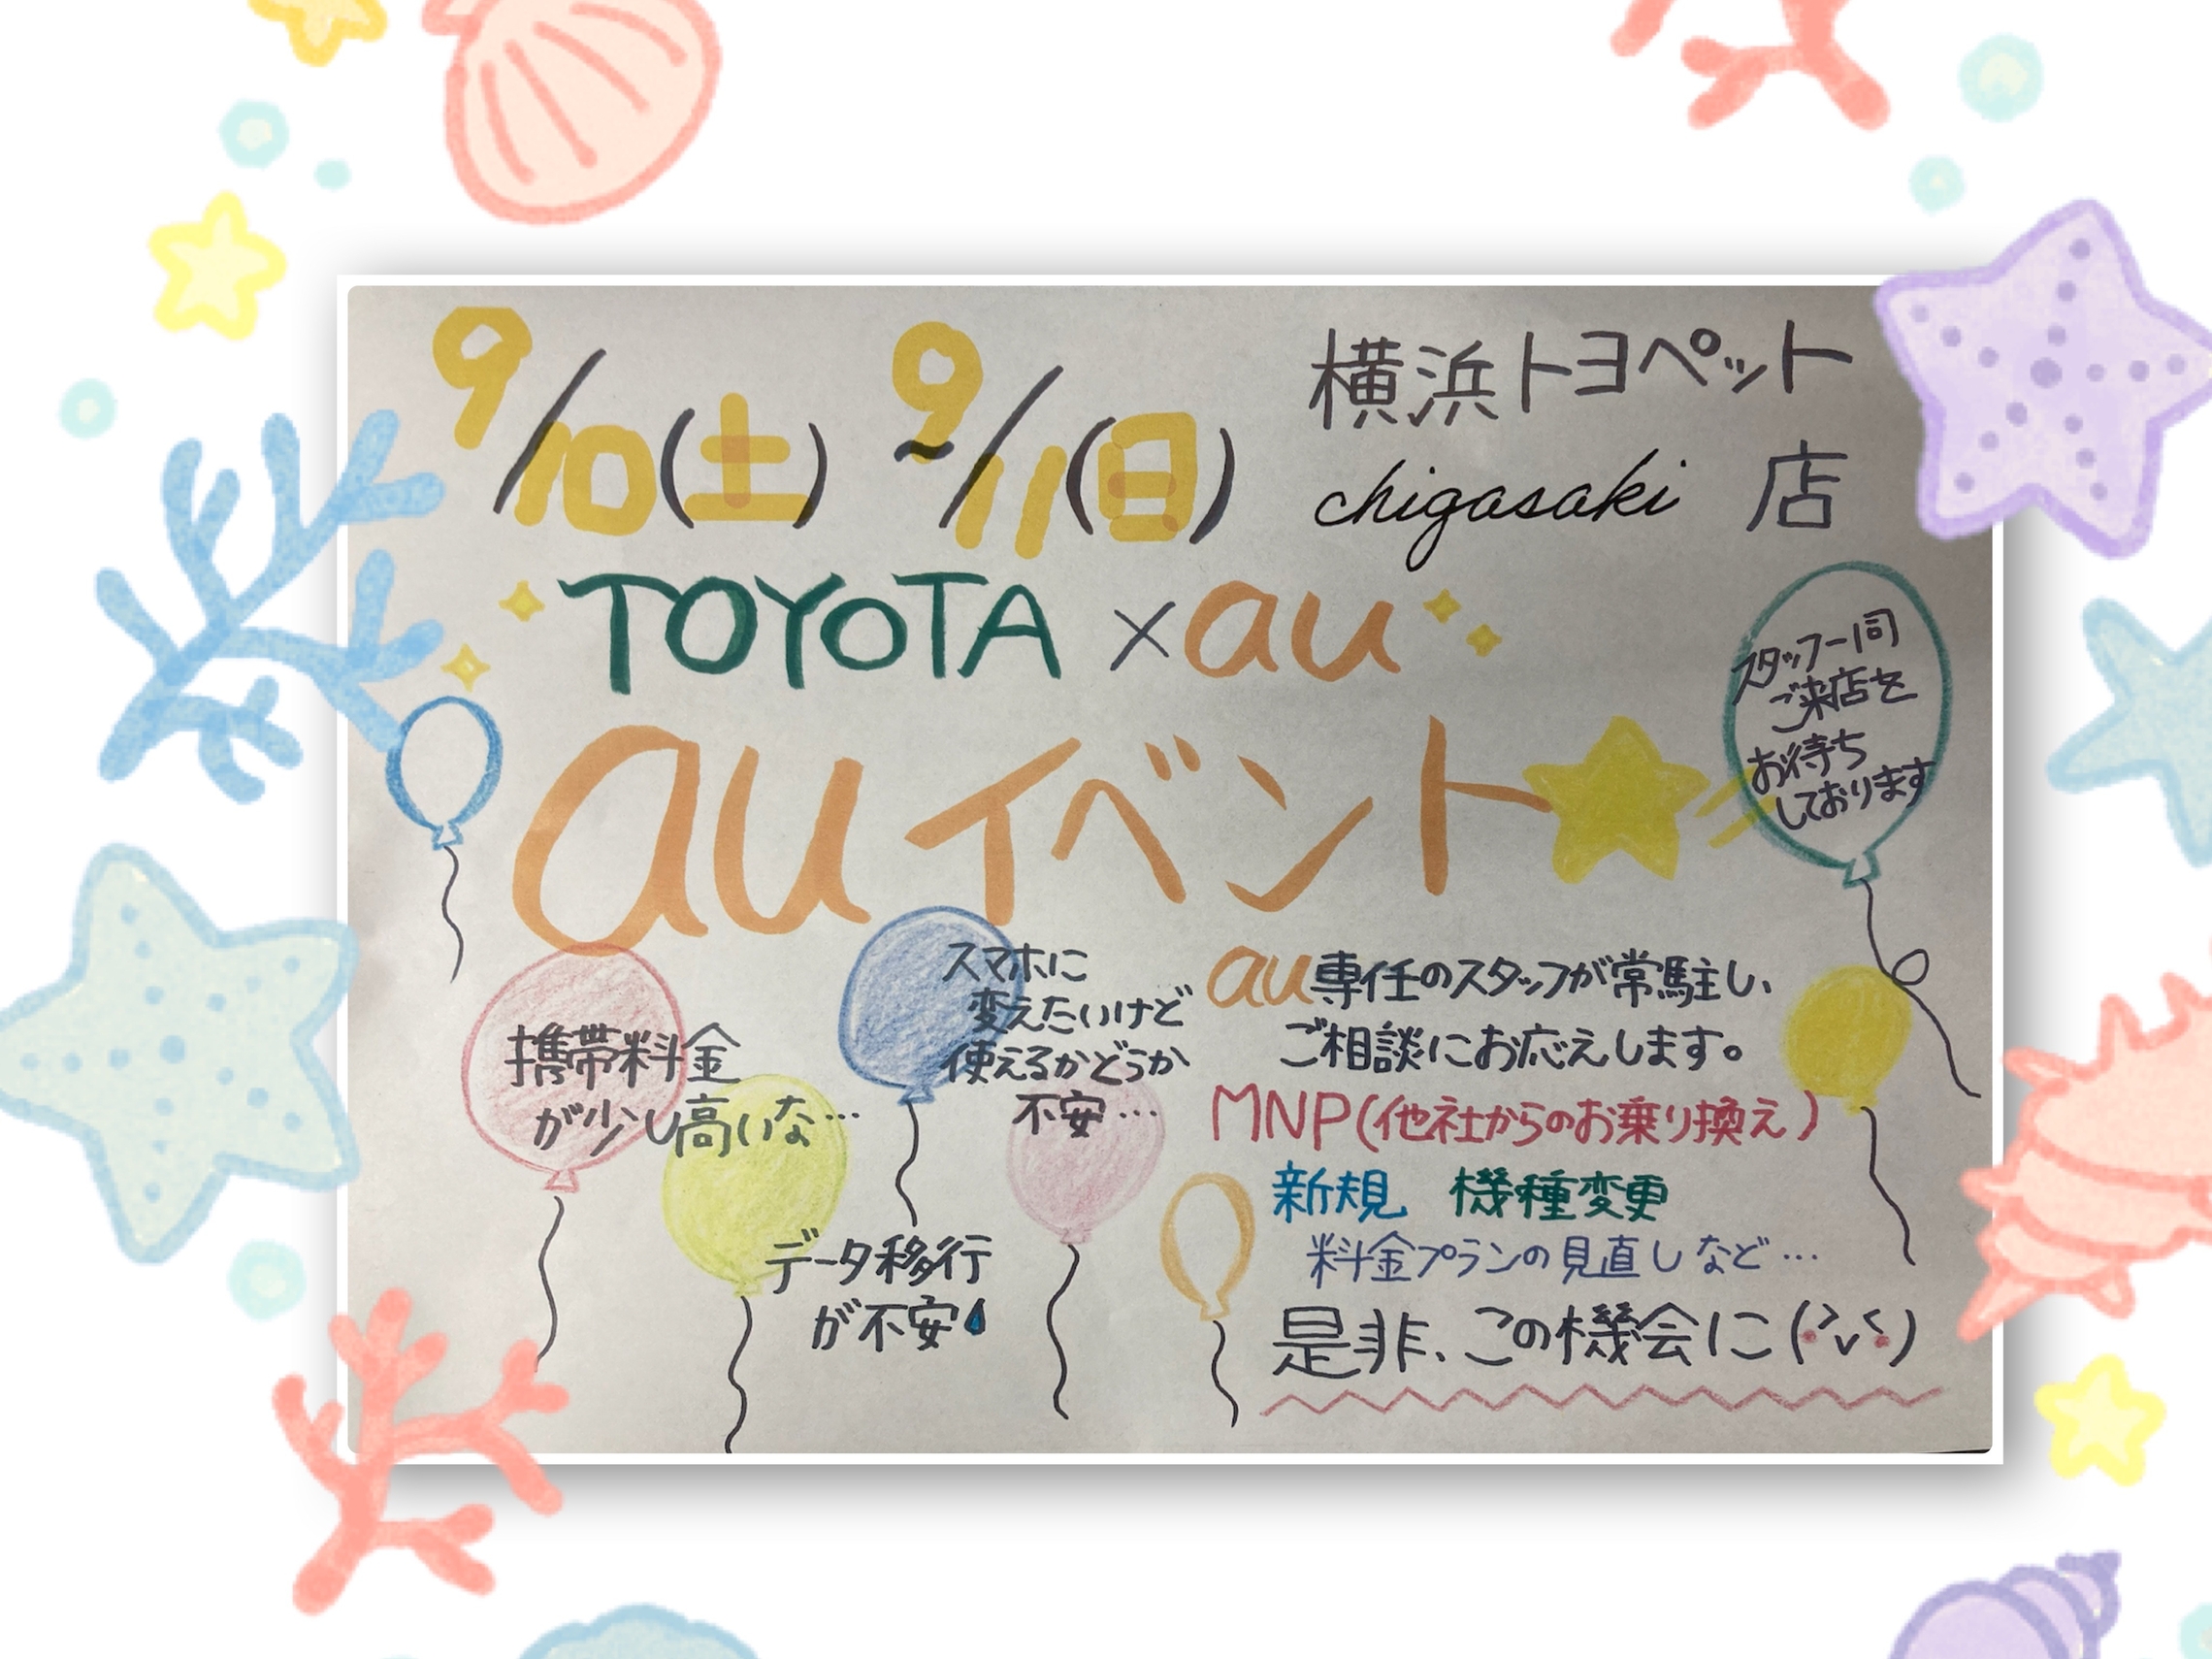 9/10(土)~9/11(日)
横浜トヨペット
chigasaki 店
TOYOTA×au
auイベント
スタッフ一同
ご来店を
お待ち
しております
携帯料金
が少し高いな…
スマホに
変えたいけど
使えるかどうか
不安…
データ移行
が不安
au専任のスタッフが常駐し、
ご相談にお応えします。
MNP(他社からのお乗り換え)
新規 機種変更
料金プランの見直しなど…
是非、この機会に(>v<)